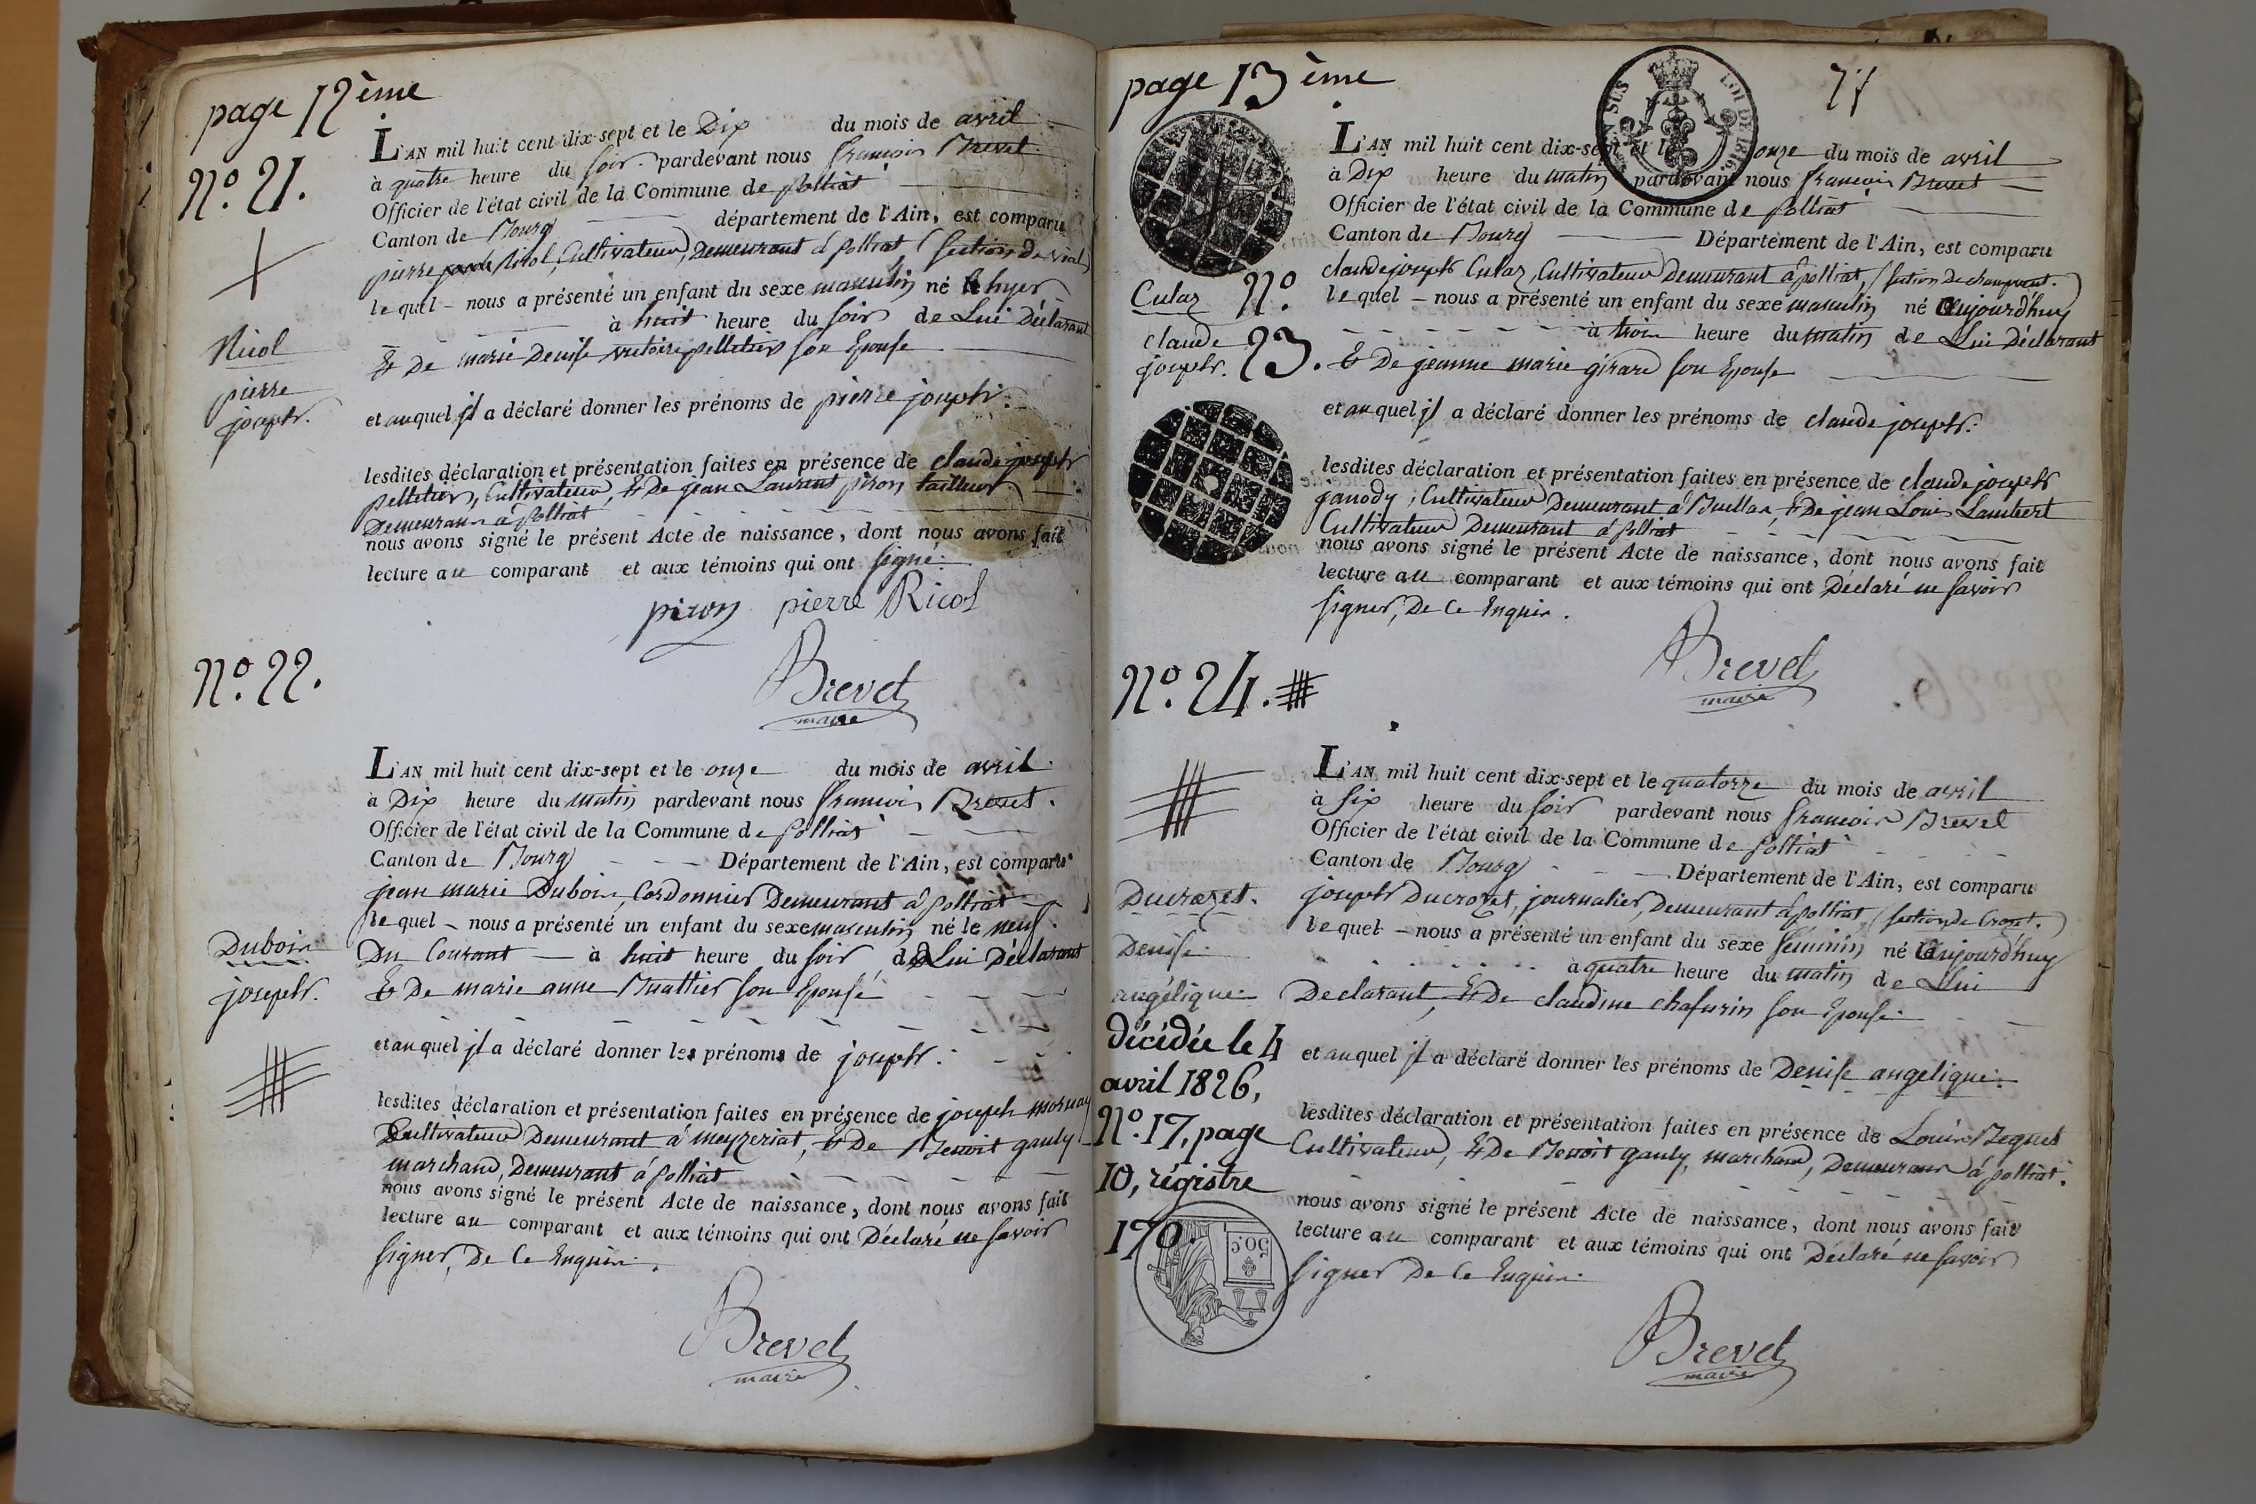 page 12ème
N.º 21.
L'AN mil huit cent dix-sept et le Dix du mois de avril
à quatre heure du soir pardevant nous françois Brevet
Officier de l'état civil de la Commune de polliat
Canton de Bourg département de l'Ain, est comparu
pierre Ricol, Cultivateur, Demeurant à polliat (section de vial)
le quel nous a présenté un enfant du sexe masculin né hyer
à huit heure du soir de Lui Déclarant
& De marie Denise victoire pelletier son Epouse
Ricol
pierre
joseph.
et auquel jl a déclaré donner les prénoms de pierre joseph.
lesdites déclaration et présentation faites en présence de claude joseph
pelletier, Cultivateur, & De jean Laurent piron tailleur
Demeurans à polliat
nous avons signé le présent Acte de naissance, dont nous avons fait
lecture au comparant et aux témoins qui ont signé.
piron pierre Ricol
Brevet
maire
N.º 22.
L'AN mil huit cent dix-sept et le onze du mois de avril
à Dix heure du matin pardevant nous françois Brevet.
Officier de l'état civil de la Commune de polliat
Canton de Bourg Département de l'Ain, est comparu
jean marie Dubois, Cordonnier Demeurant à polliat
le quel nous a présenté un enfant du sexe masculin né le neuf
Du Courant à huit heure du soir de Lui Déclarant
& De marie anne Buattier son Epouse
Dubois
joseph.
et auquel jl a déclaré donner les prénoms de joseph.
lesdites déclaration et présentation faites en présence de joseph mornay
Cultivateur Demeurant à meyzeriat, & De Benoit gauly
marchand, Demeurant à polliat
nous avons signé le présent Acte de naissance, dont nous avons fait
lecture au comparant et aux témoins qui ont Déclaré ne savoir
signer, De Ce Enquis.
Brevet
maire
page 13ème
LOI DE 1816.
L'AN mil huit cent dix-sept et le onze du mois de avril
à Dix heure du matin pardevant nous françois Brevet
Officier de l'état civil de la Commune de polliat
Canton de Bourg Département de l'Ain, est comparu
claude joseph Cular, Cultivateur Demeurant à polliat,
le quel nous a présenté un enfant du sexe masculin né aujourd'huy
à trois heure du matin de Lui Déclarant
& De jeanne marie girard son Epouse
Cular
claude
joseph.
N.º 23.
et auquel jl a déclaré donner les prénoms de claude joseph.
lesdites déclaration et présentation faites en présence de claude joseph
janody, Cultivateur Demeurant à Buellas, & De jean Louis Lambert
Cultivateur Demeurant à polliat
nous avons signé le présent Acte de naissance, dont nous avons fait
lecture au comparant et aux témoins qui ont Déclaré ne savoir
signer, De Ce Enquis.
Brevet
maire
N.º 24.
L'AN mil huit cent dix-sept et le quatorze du mois de avril
à six heure du soir pardevant nous françois Brevet
Officier de l'état civil de la Commune de polliat
Canton de Bourg Département de l'Ain, est comparu
joseph Ducrozet, journalier, Demeurant à polliat
le quel nous a présenté un enfant du sexe féminin né aujourd'huy
à quatre heure du matin de Lui
Déclarant, & De claudine chafurin son Epouse
Ducrozet.
Denise
angélique
et auquel jl a déclaré donner les prénoms de Denise angélique.
lesdites déclaration et présentation faites en présence de Louis Beguet
Cultivateur, & De Benoit gauly, marchand, Demeurans à polliat.
nous avons signé le présent Acte de naissance, dont nous avons fait
lecture au comparant et aux témoins qui ont Déclaré ne savoir
signer De Ce Enquis.
Brevet
maire
décédée le 4
avril 1826,
N.º 17, page
10, régistre
170.
50C